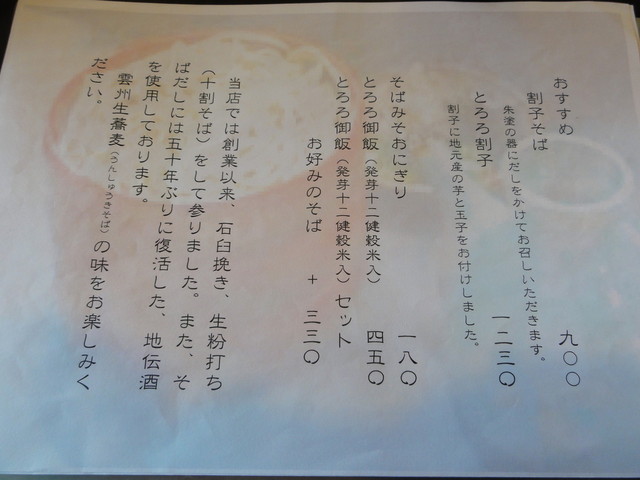 おすすめ
割子そば 九〇〇
朱塗の器にだしをかけてお召しいただきます。
とろろ割子 一二三〇
割子に地元産の芋と玉子をお付けしました。
そばみそおにぎり 一八〇
とろろ御飯(発芽十二健穀米入) 四五〇
とろろ御飯(発芽十二健穀米入)セット
お好みのそば + 三三〇
当店では創業以来、石臼挽き、生粉打ち
(十割そば)をして参りました。また、そ
ばだしには五十年ぶりに復活した、地伝酒
を使用しております。
雲州生蕎麦(うんしゅうきそば)の味をお楽しみく
ださい。